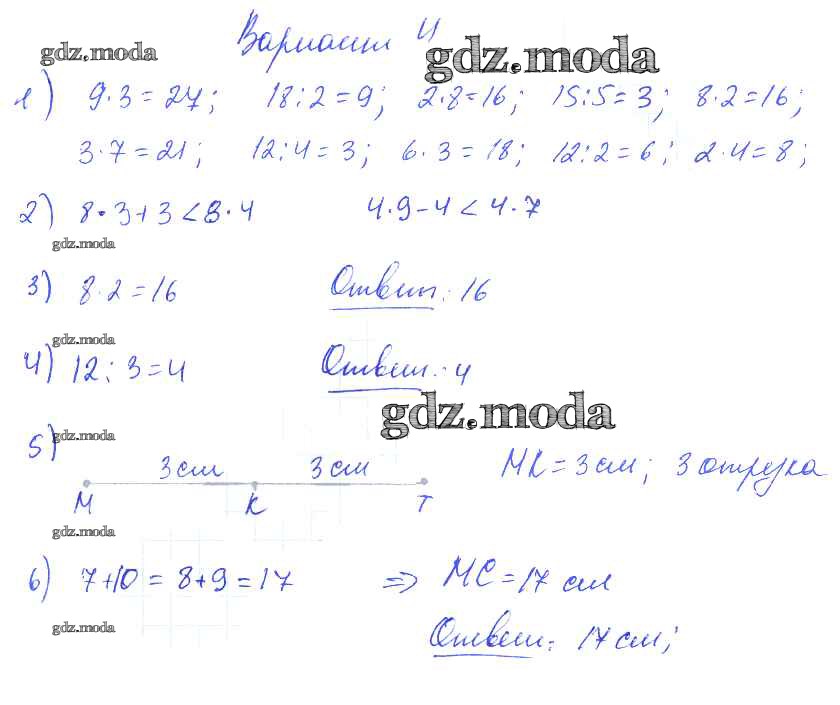 Вариант 4
gdz.moda
gdz.moda
1) 9·3=27; 18:2=9; 2·8=16; 15:5=3; 8·2=16;
3·7=21; 12:4=3; 6·3=18; 12:2=6; 2·4=8;
2) 8·3+3<8·4 4·9-4<4·7
gdz.moda
3) 8·2=16 Ответ: 16
gdz.moda
4) 12:3=4 Ответ: 4
gdz.moda
5) gdz.moda
3 см 3 см MK=3 см; 3 отрезка
M K T
gdz.moda
6) 7+10=8+9=17 => MC=17 см
gdz.moda
Ответ: 17 см;